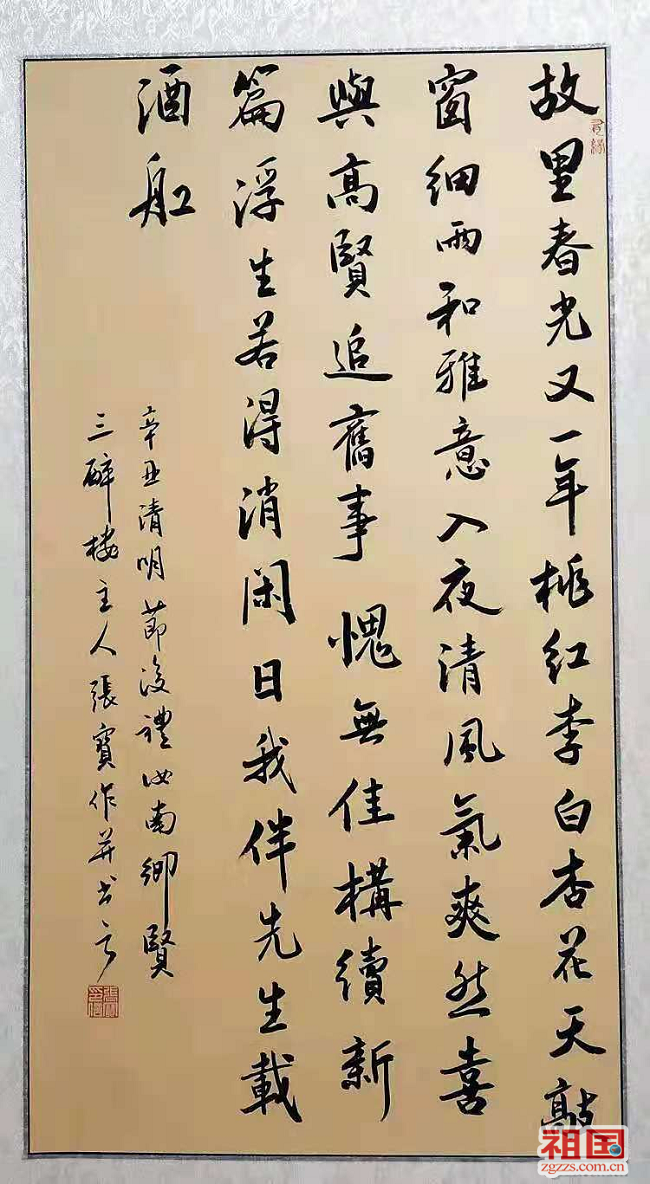 故里春光又一年桃红李白杏花天敲
窗细雨和雅意入夜清風氣爽然喜
與高賢追舊事愧無佳構續新
篇浮生若得消闲日我伴先生載
酒船
辛丑清明節後禮汝南鄉賢
三醉樓主人張寶作并书之
祖国
zgzzs.com.cn